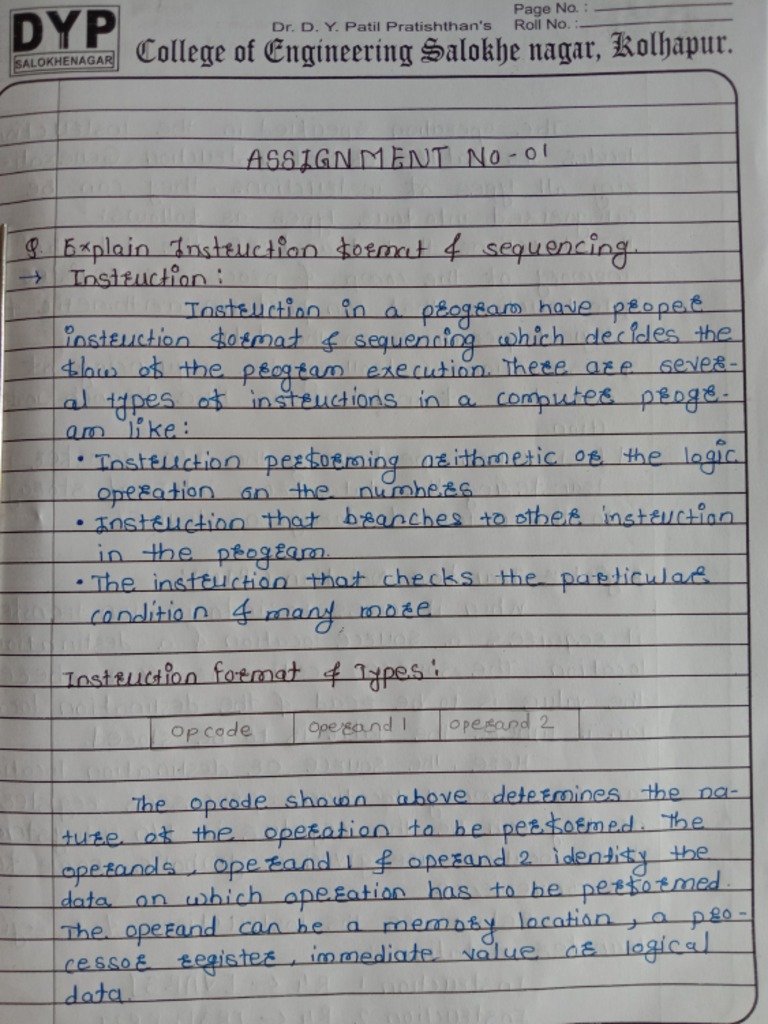 DYP
SALOKHENAGAR
Page No. :
Dr. D. Y. Patil Pratishthan's Roll No. :
College of Engineering Salokhe nagar, Kolhapur.
ASSIGNMENT NO-01
Q. Explain Instruction format & sequencing.
→ Instruction :
Instruction in a program have proper
instruction format & sequencing which decides the
flow of the program execution. There are sever-
al types of instructions in a computer progr-
am like:
• Instruction performing arithmetic or the logic
operation on the numbers
• Instruction that branches to other instruction
in the program.
• The instruction that checks the particular
condition & many more
Instruction format & Types:
opcode operand 1 operand 2
The opcode shown above determines the na-
ture of the operation to be performed. The
operands, operand 1 & operand 2 identify the
data on which operation has to be performed.
The operand can be a memory location, a pro-
cessor register, immediate value or logical
data.